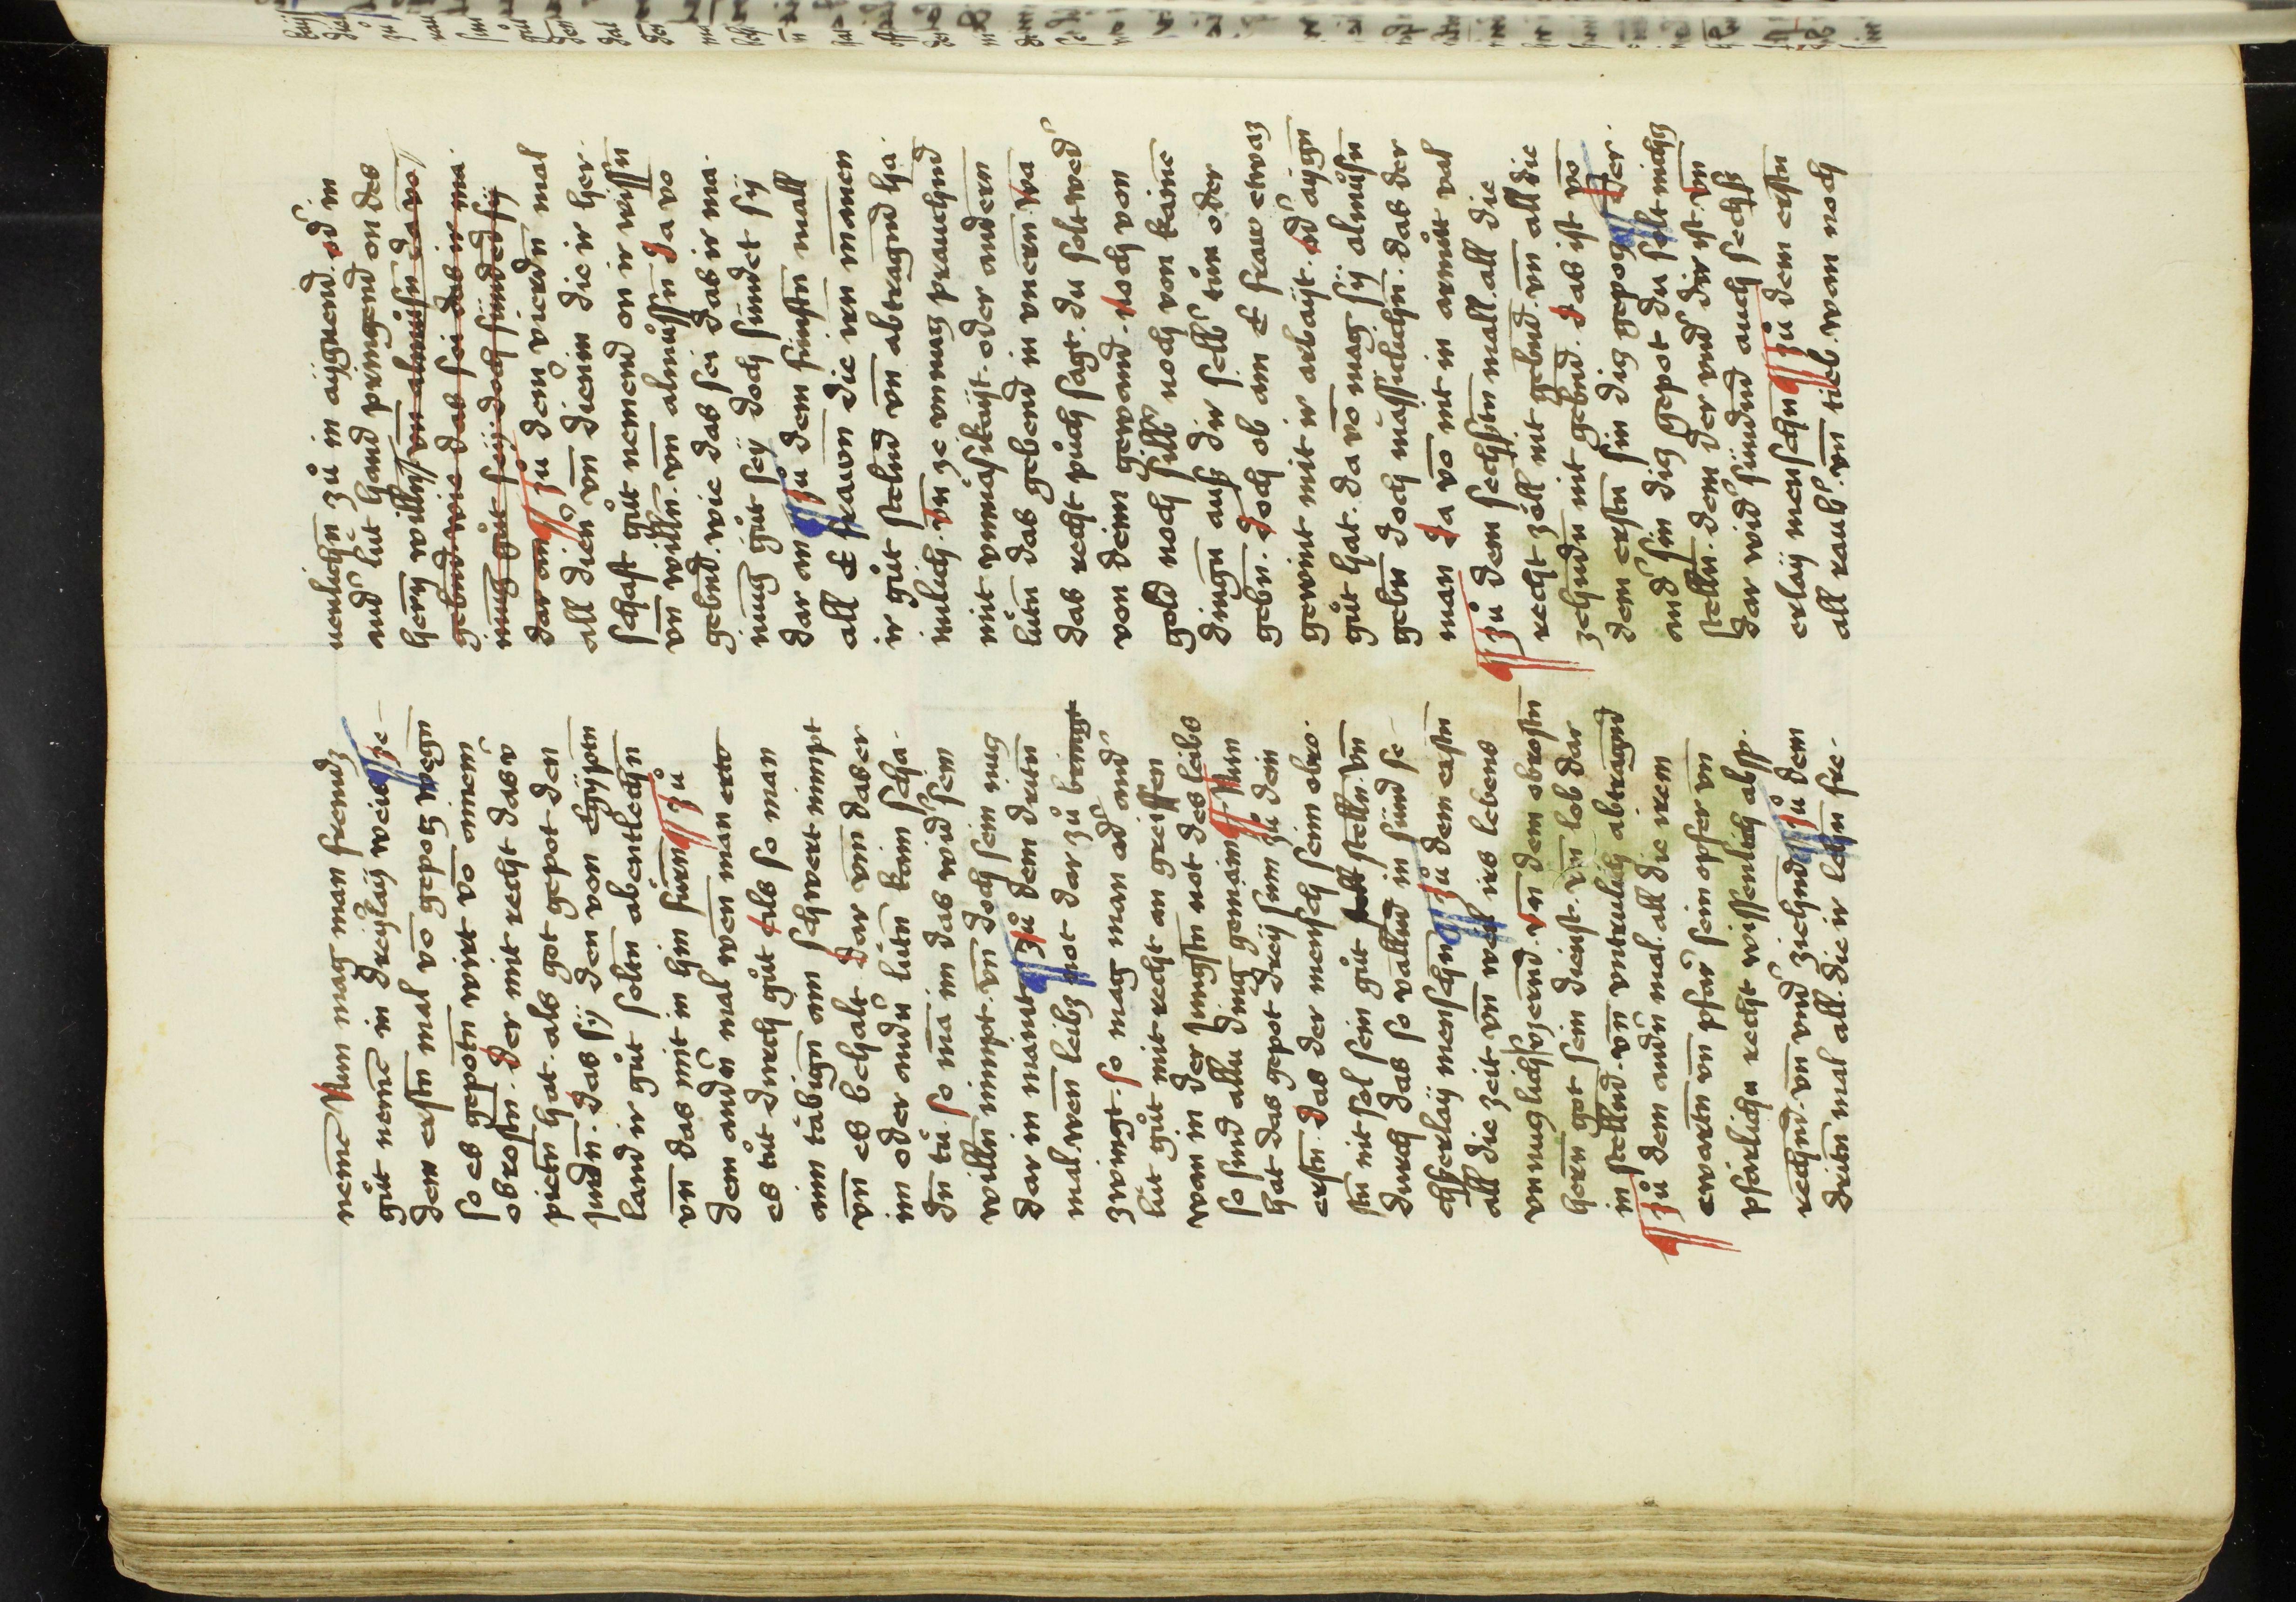 neme͞ Num mag man fremdz
gůt neme͞ in dreÿlaÿ weis ¶ ze
dem erstn̄ mal vo͞ gepotz wegn̄
so es gepotn̄ wirt vo͞ ainem
obrostn̄. der mit recht das v
pietn̄ hat. als got gepot den
judn̄. das sÿ den von egÿptn̄
land ir gůt soltn̄ abentlechn̄
vn̄ das mit in hin fůrn̄ ¶ zů
dem andn̄ mal wen man
es tůt durch gůt als so man
aim tåbign̄ ain schwert nimpt
vn̄ es behalt dar vm̄ das er
im oder andn̄ lůtn̄ kain scha-
dn̄ tů. so ma͞ im das wid' sein
willn̄ nimpt. vn̄ doch sein nucz
dar in maint ¶ zů dem dritn̄
mal. wen leibz not dar zů bringt
zwingt. so mag man ad' and'
lůt gůt mit recht an greiffen
wan in der jungstn̄ not des leibs
so sind allu ding gemain ¶ Num
hat das gepot dreÿ sinn zů dem
erstn̄. das der mensch seim obro-
stn̄ nit sol sein gůt stelln̄. vn̄
durch das so vallnd in sünd se-
chserlaÿ menschn̄ ¶ zů dem erstn̄
all die zeit vn̄ weil irs lebens
vnnuczlich vzerend. vn̄ dem obrostn̄
hern̄ got sein dienst. vn̄ lob dar
in stellnd. vn̄ vntrulich abtragnd
¶ zů dem andn̄ mal. all die irem
ewartn̄ vn̄ pfar' sein opfer vn̄
pfårlichu recht wissenlich absp-
rechnd. vn̄ vnd' ziechnd ¶ zů dem
dritn̄ mal all. die ir lechn̄ fre-
uenlichn̄ zů in aÿgnend. od' in
and' lůt hand pringend on des
hern̄ willn̄ vn̄ almůsn̄ da vo͞
gebnd wie das sei das ir ma-
inug gůt seÿ. doch sündet sÿ
dar an ¶ zů dem vierdn̄ mal
all dien' vn̄ dienin die ir her-
schaft gůt nemend on ir wissn̄
vn̄ willn̄. vn̄ almůssn̄ da vo
gebnd. wie das sei das ir ma-
inug gůt seÿ doch sündet sÿ
dar an ¶ zů dem fünftn̄ mall
all E frawn̄ die irn mannen
ir gůt stelnd vn̄ abtragnd ha-
imlich. vn̄ ze vnnucz prauchnd
mit vnmåsikaÿt. oder andern
lůtn̄ das gebend in vneren. wa
das recht půch sagt. du solt wed'
von deim gewand. noch von
gold noch silb' noch von kaine͞
dingn̄ auß dir selb' tůn oder
gebn̄. doch ob ain E fraw etwaz
gewint mit ir arbaÿt. od' aÿgn̄
gůt hat. da vo͞ mag sÿ almůsn̄
gebn̄ doch måssiclichn̄. das der
man da vo͞ nit in armůtt val
¶ zů dem sechstn̄ mall. all die
recht zöll nit gebnd. vn̄ all die
zechndn̄ nit gebnd. das ist vo͞
dem erstn̄ sin diz gepocz ¶ Der
and' sin diz gepot du solt nichz
stelln̄. dem der vnd' dir ist. vn̄
dar wid' sündnd auch sechß
erlaÿ menschn̄ ¶ zů dem erstn̄
all raub'. vn̄ dieb. wan noch